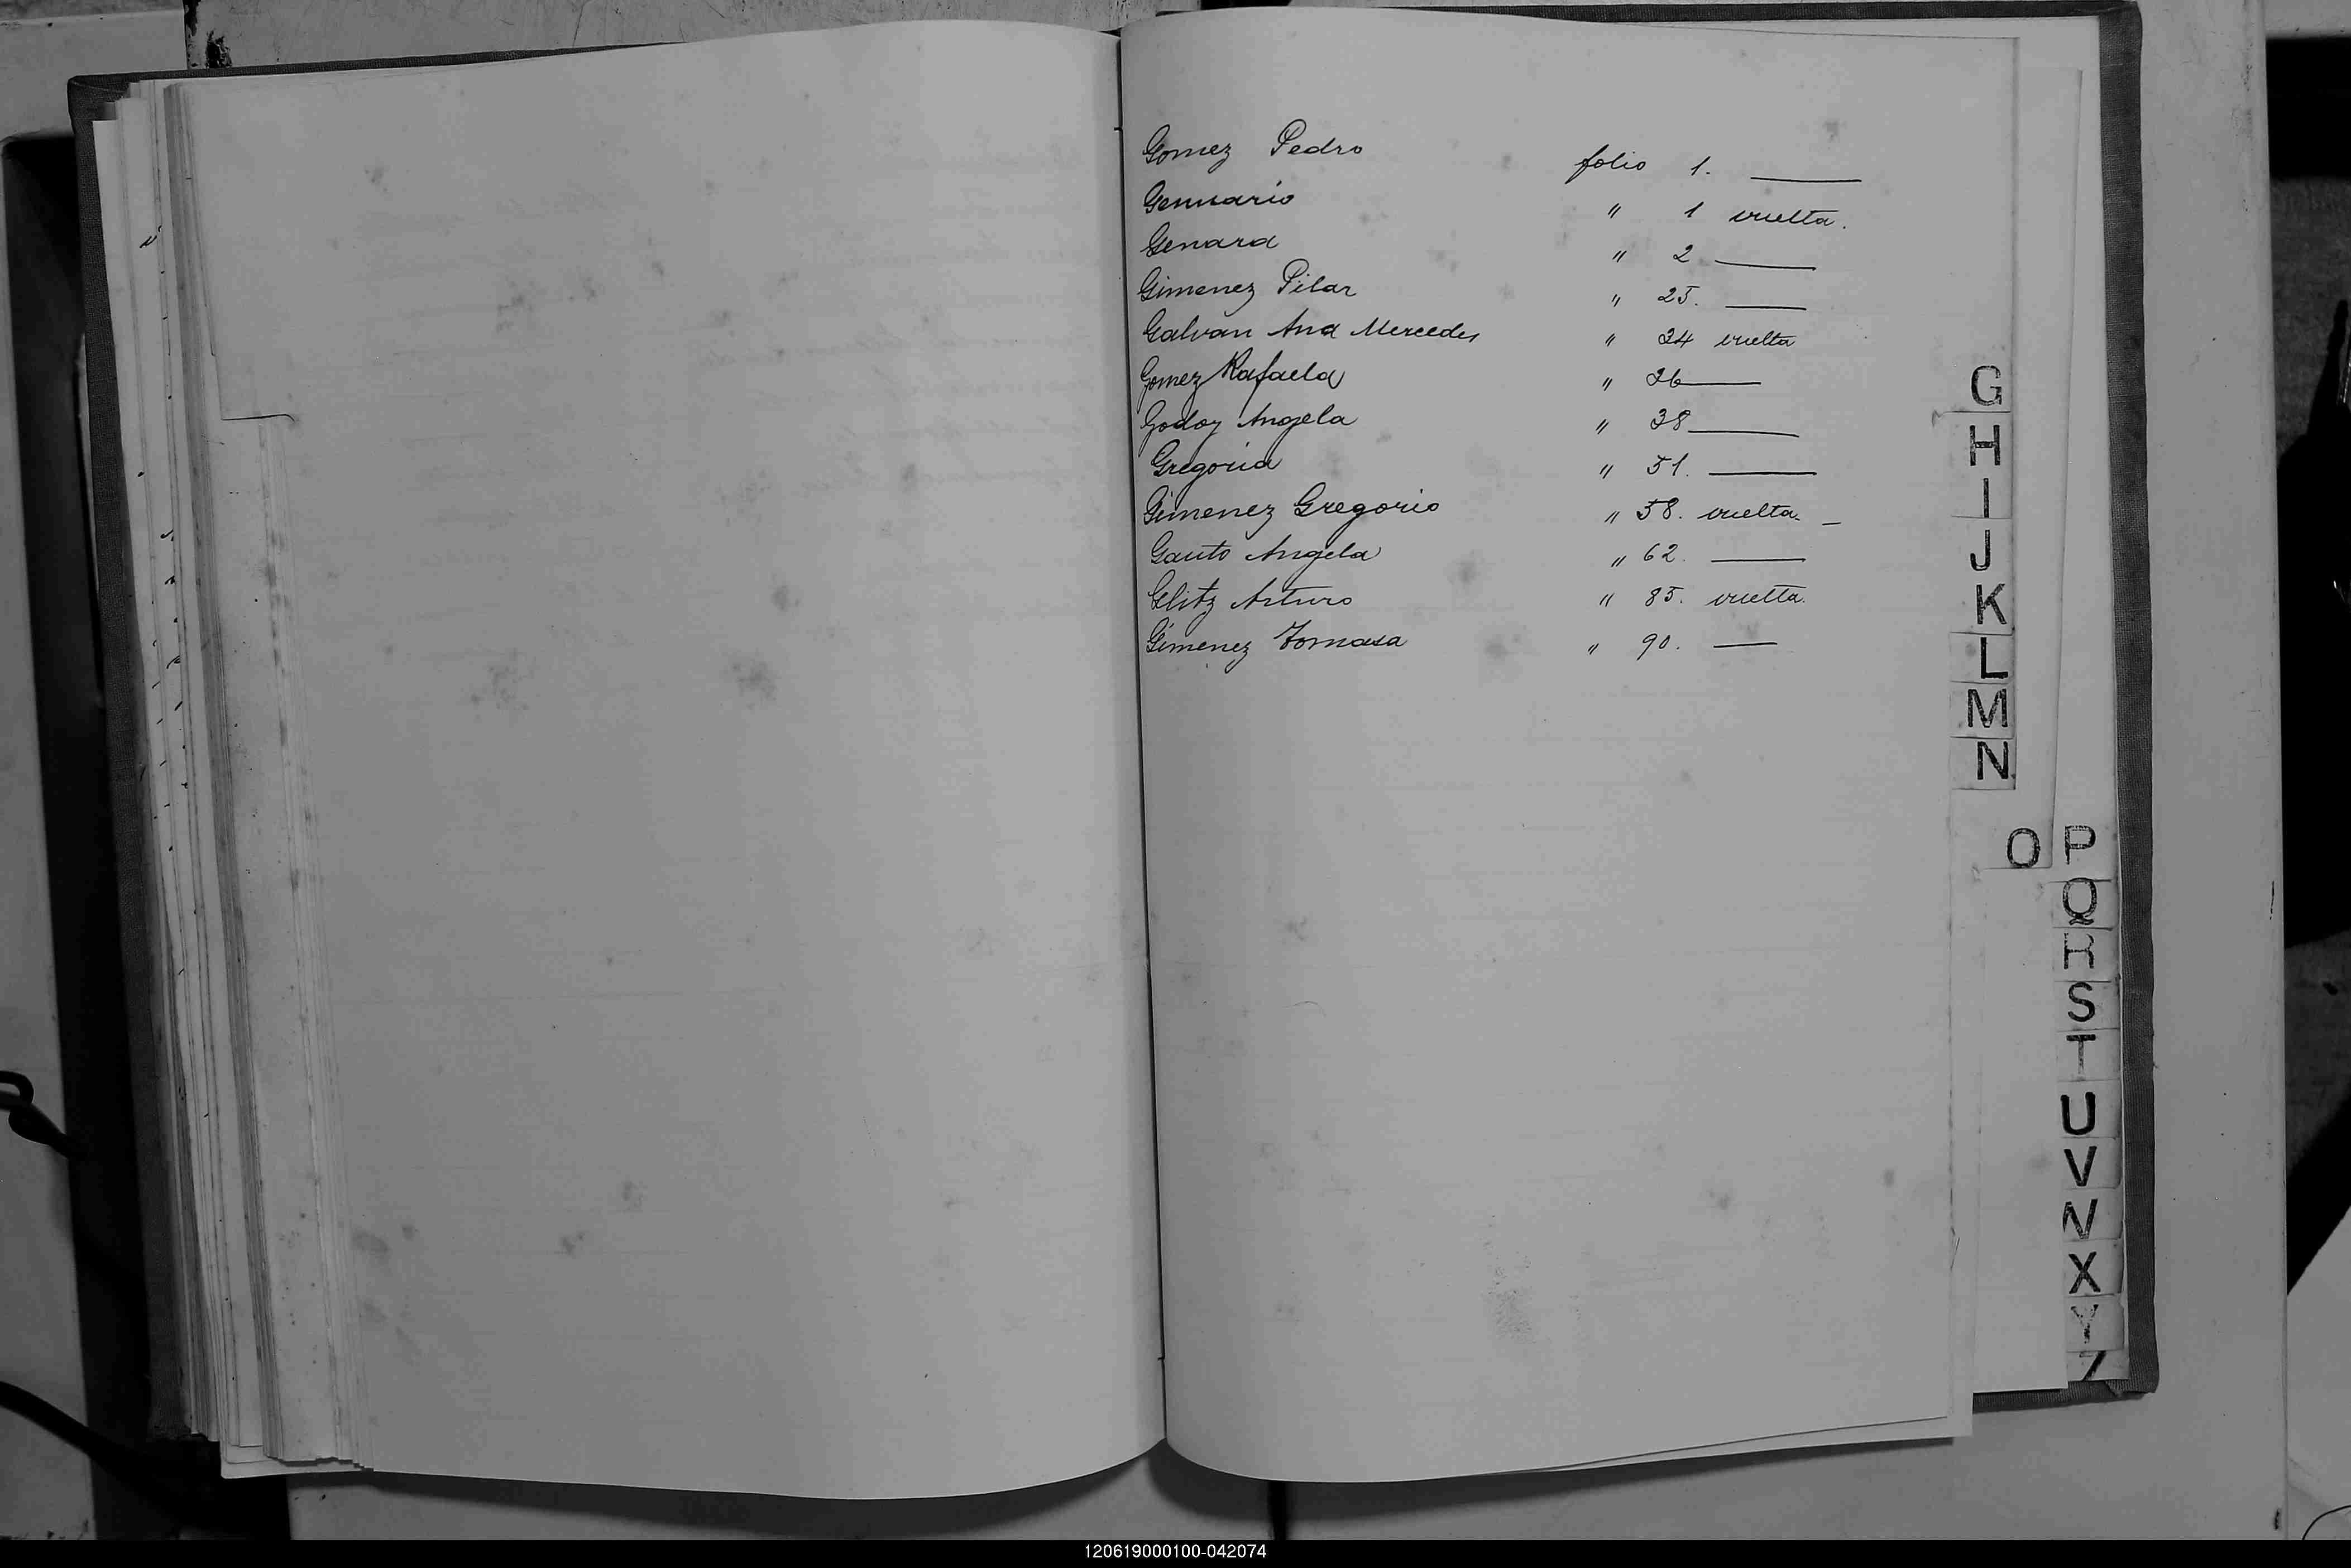 Gomez Pedro folio 1. ———
Gennario " 1 vuelta.
Genara " 2 ———
Gimenez Pilar " 25. ———
Galvan Ana Mercedes " 34 vuelta
Gomez Rafaela " 36 ———
Godoy Angela " 38 ———
Gregoria " 51. ———
Gimenez Gregorio " 58. vuelta. —
Gauto Angela " 62. ———
Glitz Arturo " 85. vuelta.
Gimenez Tomasa " 90. ———
G
H
I
J
K
L
M
N
O P
Q
R
S
T
U
V
W
X
Y
Z
120619000100-042074